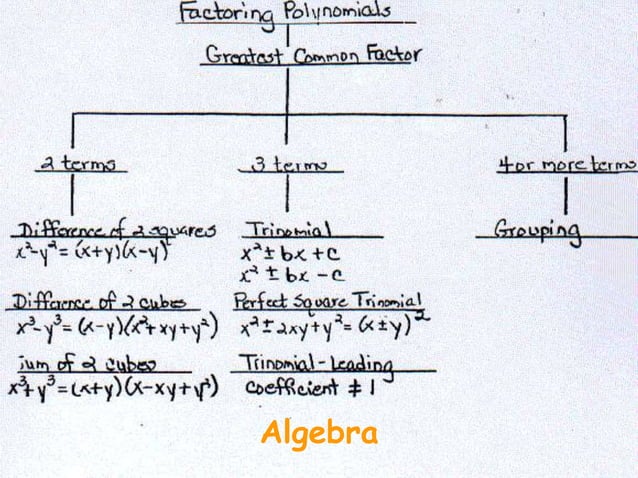 Factoring Polynomials
Greatest Common Factor
2 terms
3 terms
4 or more terms
Difference of 2 squares
x²-y²=(x+y)(x-y)
Difference of 2 cubes
x³-y³=(x-y)(x²+xy+y²)
sum of 2 cubes
x³+y³=(x+y)(x-xy+y²)
Trinomial
x²±bx+c
x²±bx-c
Perfect Square Trinomial
x²±2xy+y²=(x±y)²
Trinomial-Leading
coefficient ≠ 1
Grouping
Algebra